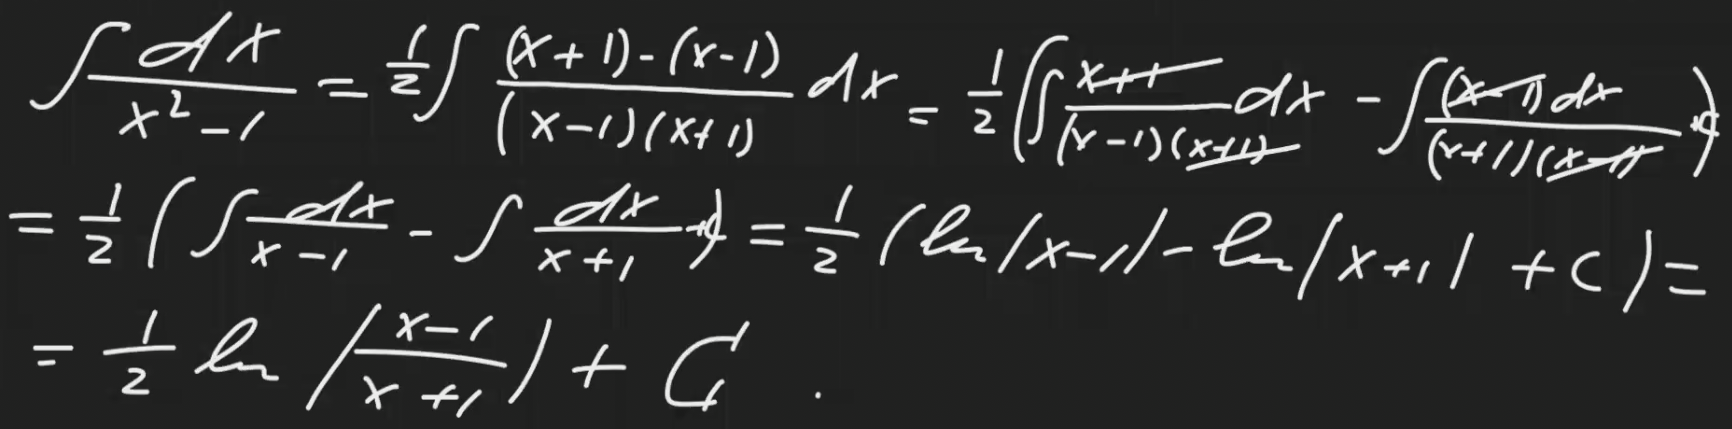 ∫ dx/(x² - 1) = 1/2 ∫ ((x+1) - (x-1))/((x-1)(x+1)) dx = 1/2 (∫ (x+1)/((x-1)(x+1)) dx - ∫ ((x-1)dx)/((x+1)(x-1)))
= 1/2 (∫ dx/(x-1) - ∫ dx/(x+1)) = 1/2 (ln|x-1| - ln|x+1| + C) =
= 1/2 ln |(x-1)/(x+1)| + C.